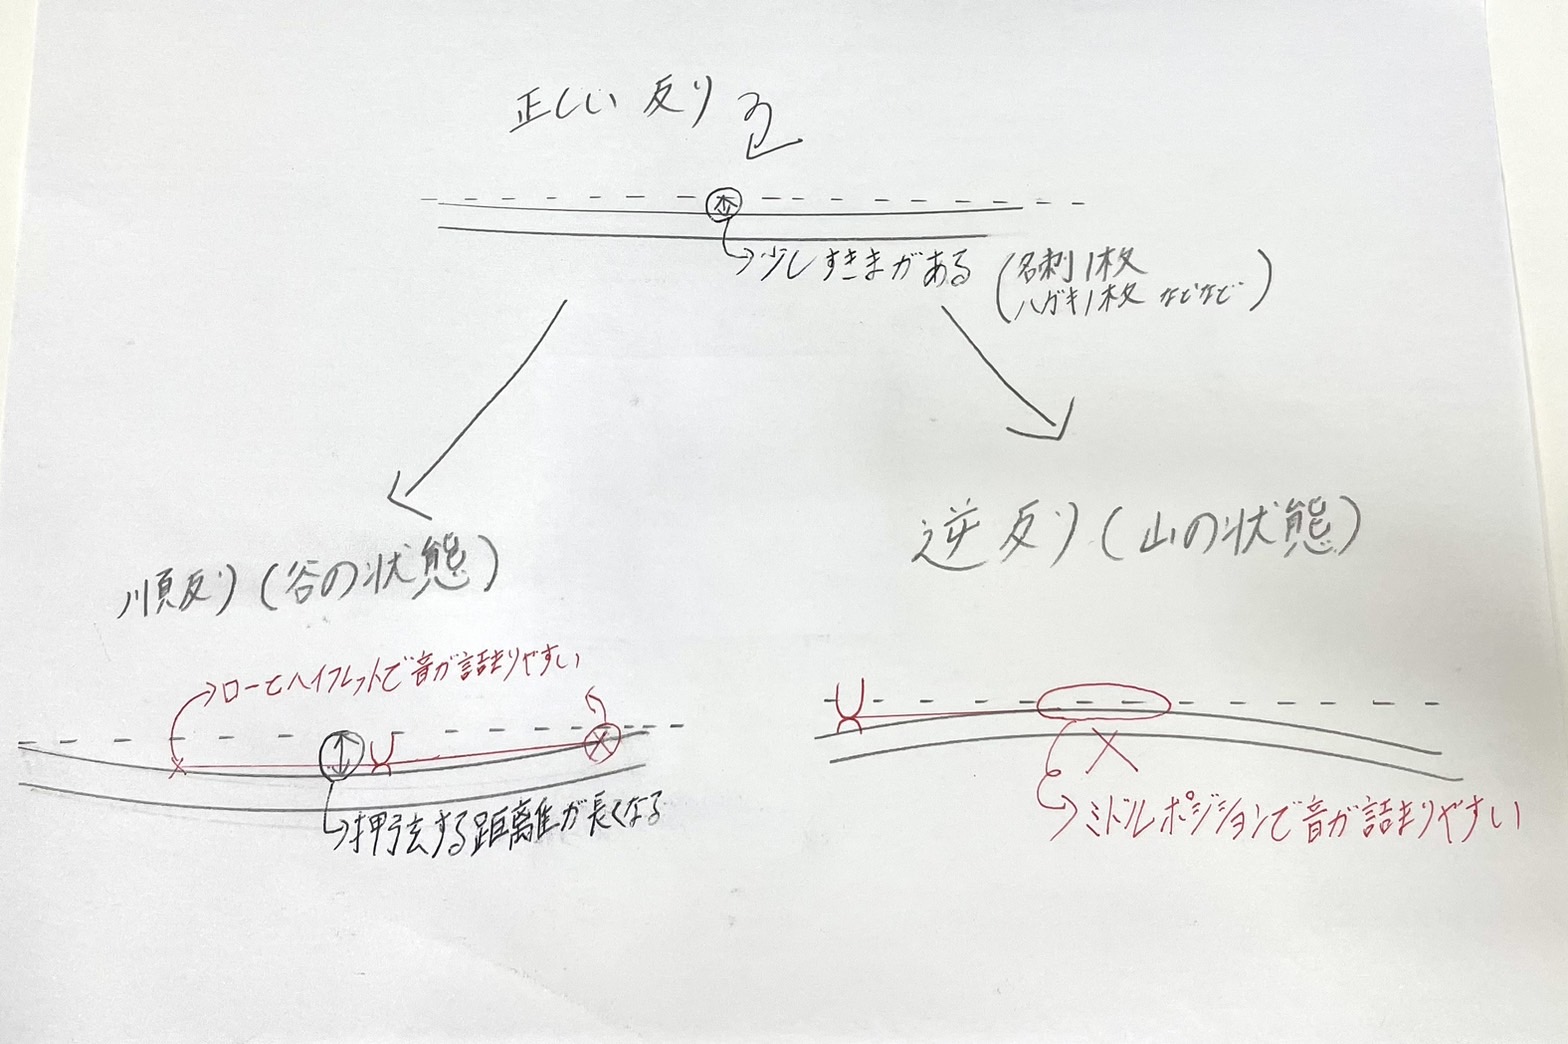 正しい反り
少しすきまがある
(名刺1枚
ハガキ1枚 などなど)
順反り(谷の状態)
ローとハイフレットで音が詰まりやすい
押弦する距離が長くなる
逆反り(山の状態)
ミドルポジションで音が詰まりやすい